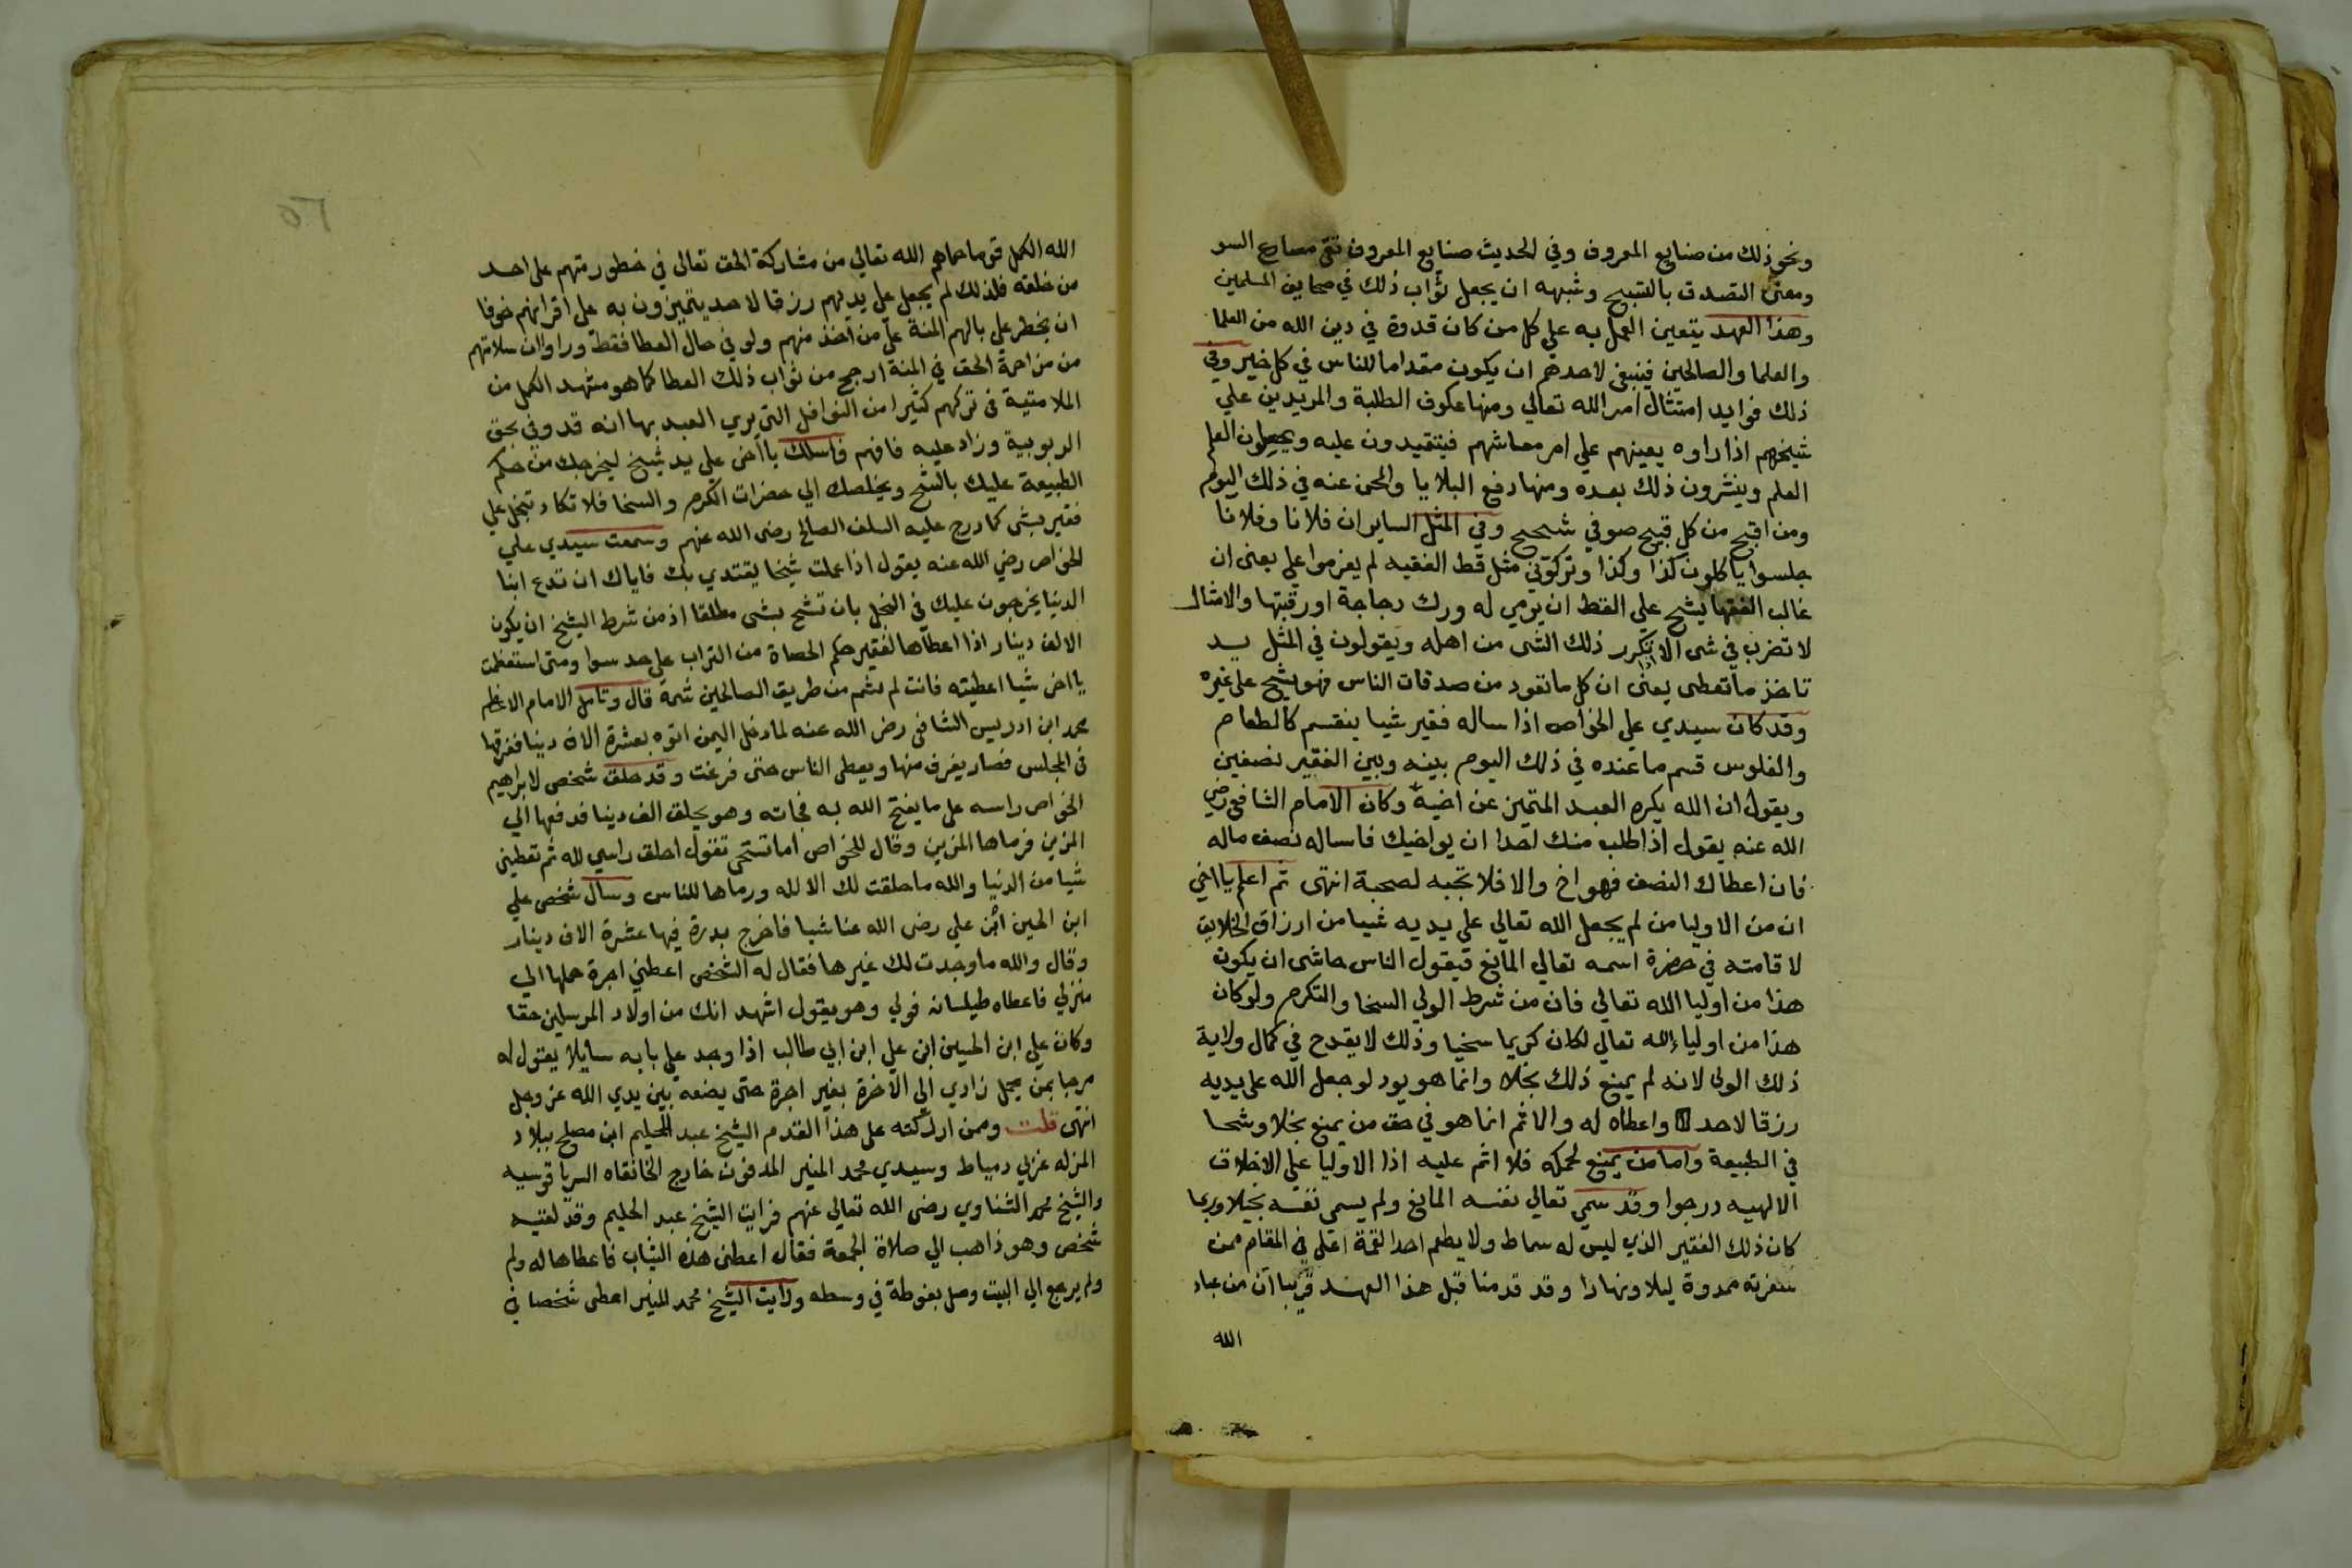 ونحو ذلك من صنايع المعروف وفي الحديث صنايع المعروف تقي مصارع السو
ومعنى التصدق بالتسبيح وشبهه ان يجعل ثواب ذلك في صحايف المسلمين
وهذا العهد يتعين العمل به على كل من كان قدوة في دين الله من العلما
والعلما والصالحين فينبغي لاحدهم ان يكون مقداما للناس في كل خير وفي
ذلك فوايد امتثال امر الله تعالي ومنها عكوف الطلبة والمريدين علي
شيخهم اذا راوه يعينهم علي امر معاشهم فيتقيدون عليه ويحصلون العلم
العلم وينشرون ذلك بعده ومنها دفع البلايا والمحن عنه في ذلك اليوم
ومن اقبح من كل قبيح صوفي شحيح وفي المثل الساير ان فلانا وفلانا
جلسوا ياكلون كذا وكذا وتركوني مثل قط الفقيه لم يعزموا علي يعني ان
غالب الفقها يشح علي القط ان يرمي له ورك دجاجة او رقبتها والامثال
لا تضرب في شي الا اذا تكرر ذلك الشي من اهله ويقولون في المثل يد
تاخذ ما تعطي يعني ان كل ما تعود من صدقات الناس فهو يشح على غيره
وقد كان سيدي علي الخواص اذا ساله فقير شيا ينقسم كالطعام
والفلوس قسم ما عنده في ذلك اليوم بينه وبين الفقير نصفين
ويقول ان الله يكره العبد المتميز عن اخيه وكان الامام الشافعي رضي
الله عنه يقول اذا طلب منك احدا ان يواخيك فاساله نصف ماله
فان اعطاك النصف فهو اخ والا فلا تجبه لصحبة انتهى ثم اعلم يا اخي
ان من الاوليا من لم يجعل الله تعالي علي يديه شيا من ارزاق الخلايق
لاقامته في حضرة اسمه تعالي المانع فيقول الناس حاشى ان يكون
هذا من اوليا الله تعالي فان من شرط الولي السخا والتكرم ولو كان
هذا من اولياء الله تعالي لكان كريما سخيا وذلك لا يقدح في كمال ولاية
ذلك الولي لانه لم يمنع ذلك بخلا وانما هو يود لو جعل الله على يديه
رزقا لاحد واعطاه له والاثم انما هو في حق من يمنع بخلا وشحا
في الطبيعة واما من يمنع لحكمه فلا اثم عليه اذا الاوليا علي الاخلاق
الالهيه درجوا وقد سمي تعالي نفسه المانع ولم يسمي نفسه بخيلا وربما
كان ذلك الفقير الذي ليس له سماط ولا يطعم احدا لقمة اعلى في المقام ممن
سفرته ممدودة ليلا ونهارا وقد قدمنا قبل هذا العهد قريبا ان من عباد
الله
٢٥
الله الكمل قوما حماهم الله تعالي من مشاركة الحق تعالى في خطور منهم على احد
من خلقه فلذلك لم يجعل على يديهم رزقا لاحد يتميزون به على اقرانهم خوفا
ان يخطر على بالهم المنة على من اخذ منهم ولو في حال العطا فقط وراوا ان سلامتهم
من مزاحمة الحق في المنة ارجح من ثواب ذلك العطا كما هو مشهد الكمل من
الملامتية في تركهم كثيرا من النوافل التي يري العبد بها انه قد وفي بحق
الربوبية وزاد عليه فافهم فاسلك يا اخي علي يد شيخ ليخرجك من حكم
الطبيعة عليك بالشح ويخلصك الي حضرات الكرم والسخا فلا تكاد تبخل علي
فقير بشي كما درج عليه السلف الصالح رضى الله عنهم وسمعت سيدي علي
الخواص رضي الله عنه يقول اذا عملت شيخا يقتدي بك فاياك ان تدع ابنا
الدنيا يخرجون عليك في البخل بان تشح بشي مطلقا اذ من شرط الشيخ ان يكون
الالف دينار اذا اعطاها لفقير حكم الحصاة من التراب على حد سوا ومتى استعظمت
يا اخي شيا اعطيته فانت لم تشم من طريق الصالحين شمة قال وتامل الامام الاعظم
محمد ابن ادريس الشافعي رضي الله عنه لما دخل اليمن اتوه بعشرة الاف دينا ففرقها
في المجلس فصار يغرف منها ويعطي الناس حتى فرغت وقد حلق شخص لابراهيم
الخواص راسه على ما يفتح الله به فجاته وهو يحلق الف دينا فدفعها الي
المزين فرماها المزين وقال للخواص اما تستحي تقول احلق راسي لله ثم تعطيني
شيا من الدنيا والله ما حلقت لك الا لله ورماها للناس وسال شخص علي
ابن الحسين ابن علي رضى الله عنا شيا فاخرج بدرة فيها عشرة الاف دينار
وقال والله ما وجدت لك غيرها فقال له الشخص اعطني اجرة حملها الي
منزلي فاعطاه طيلسانه فولي وهو يقول اشهد انك من اولاد المرسلين حقا
وكان علي ابن الحسين ابن علي ابن ابي طالب اذا وجد علي بابه سايلا يقول له
مرحبا بمن يحمل زادي الى الاخرة بغير اجرة حتى يضعه بين يدي الله عز وجل
انتهى قلت وممن ادركته على هذا القدم الشيخ عبد الحليم ابن مصلح ببلاد
المنزله غربي دمياط وسيدي محمد المنير المدفون خارج الخانقاه السرياقوسيه
والشيخ محمد الشناوي رضى الله تعالي عنهم فرايت الشيخ عبد الحليم وقد لقيه
شخص وهو ذاهب الي صلاة الجمعة فقال اعطني هذه الثياب فاعطاها له ولم
ولم يرجع الي البيت وصل بفوطة في وسطه ورايت الشيخ محمد المنير اعطى شخصا في